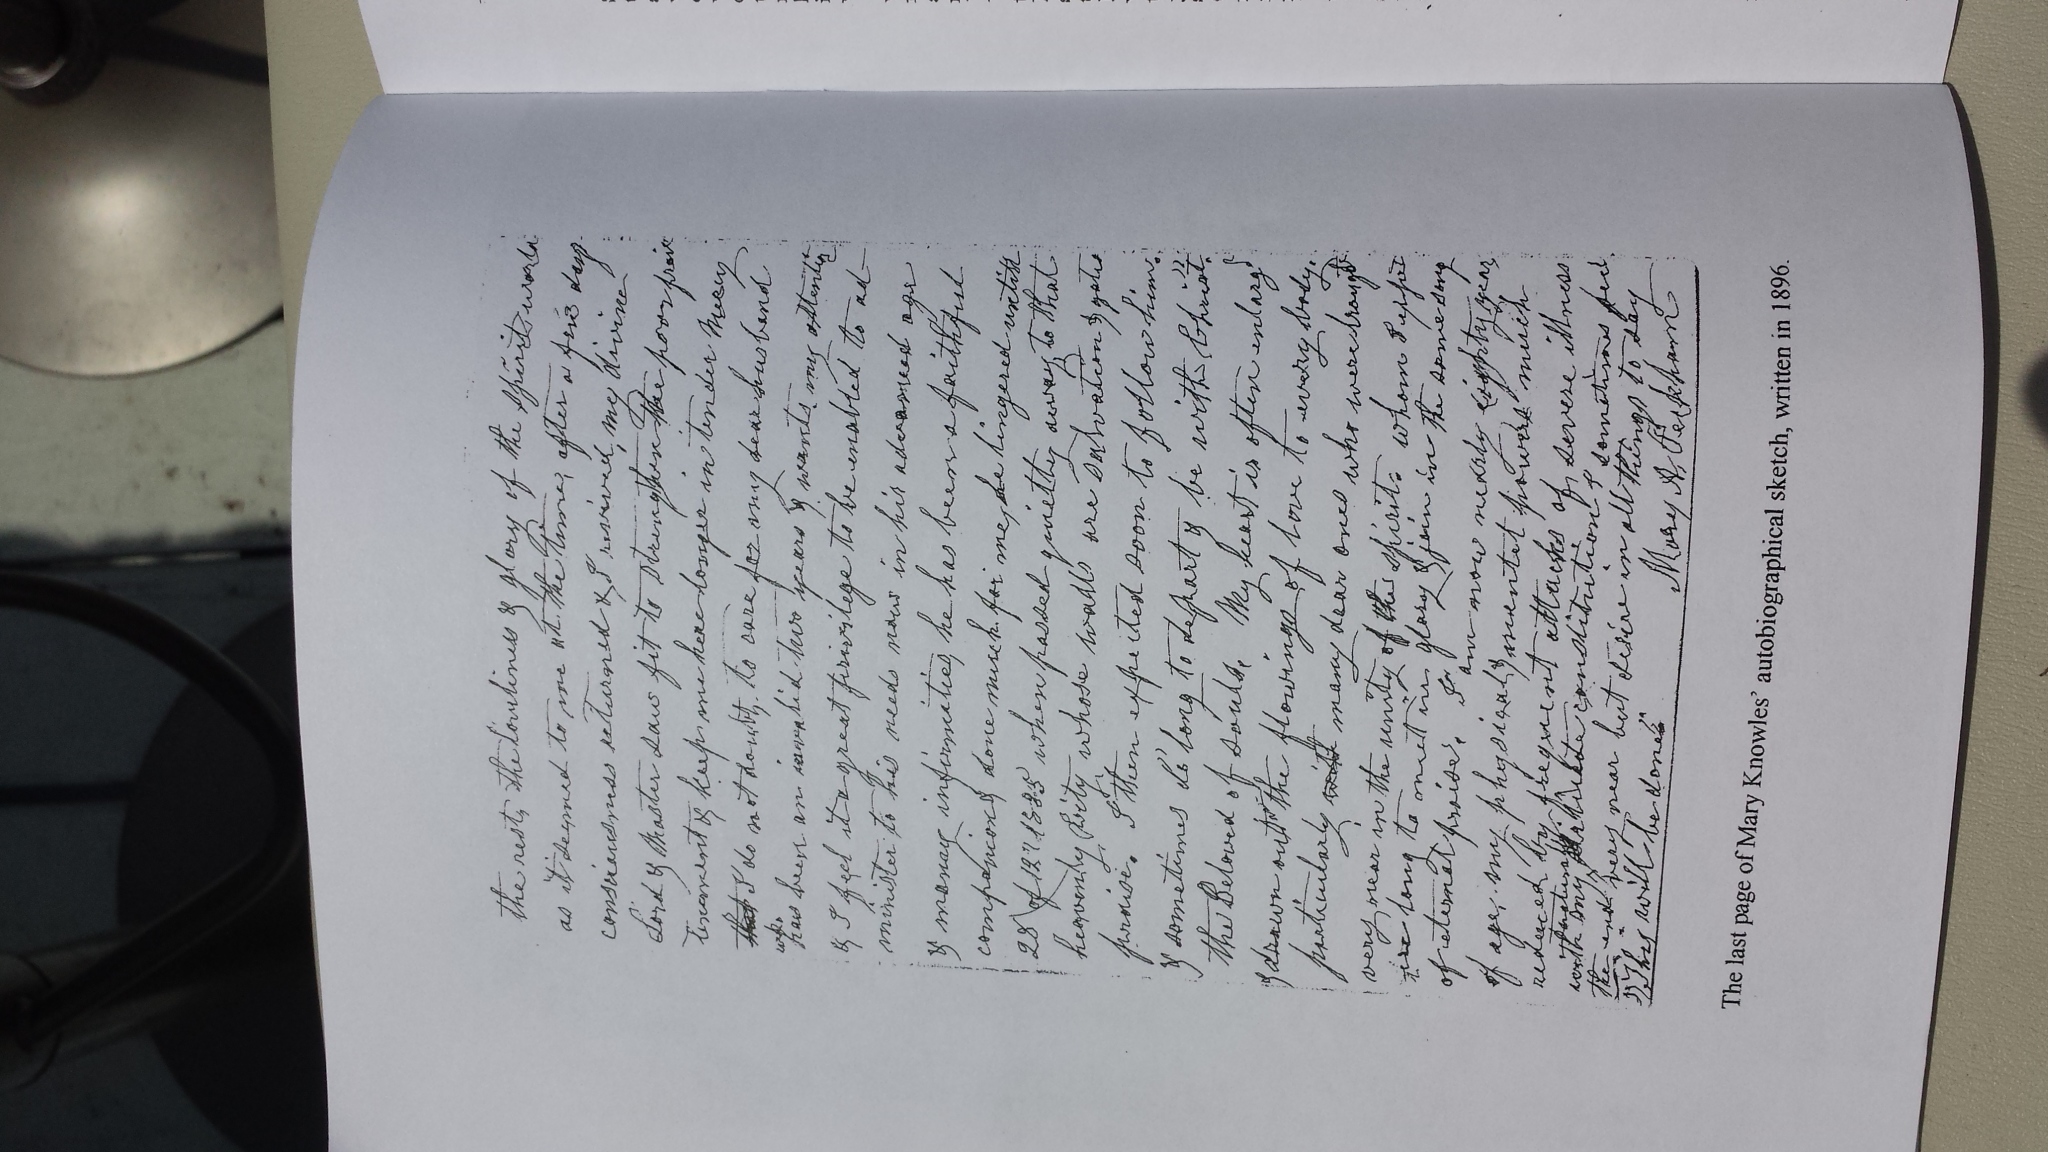 the rest, the loveliness & glory of the spirit world
as it seemed to me at the time, after a few days
consciousness returned & I revived, my divine
Lord & Master saw fit to strengthen the poor frail
tenement & keep me here longer in tender Mercy
I do not doubt, to care for my dear husband
who has been an invalid two years & wants my attention
& I feel it a great privilege to be enabled to ad-
minister to his needs now in his advanced age
& many infirmities, he has been a faithful
companion & done much for me, he lingered until
28 of 12 1885 when passed quietly away to that
heavenly City whose walls are salvation & gates
praise. I then expected soon to follow him.
& sometimes do "long to depart & be with Christ"
the Beloved of souls. My heart is often enlarged
& drawn out in the flowings of love to every body,
particularly many dear ones who were brought
very near in the unity of the spirit: whom I expect
ere long to meet in glory & join in the same song
of eternal praise. I am now nearly eighty years
of age, my physical & mental powers much
reduced by frequent attacks of severe illness
with my constitution, & sometimes feel
the end very near but desire in all things to say
"Thy will be done" Mary A. Peckham
The last page of Mary Knowles' autobiographical sketch, written in 1896.